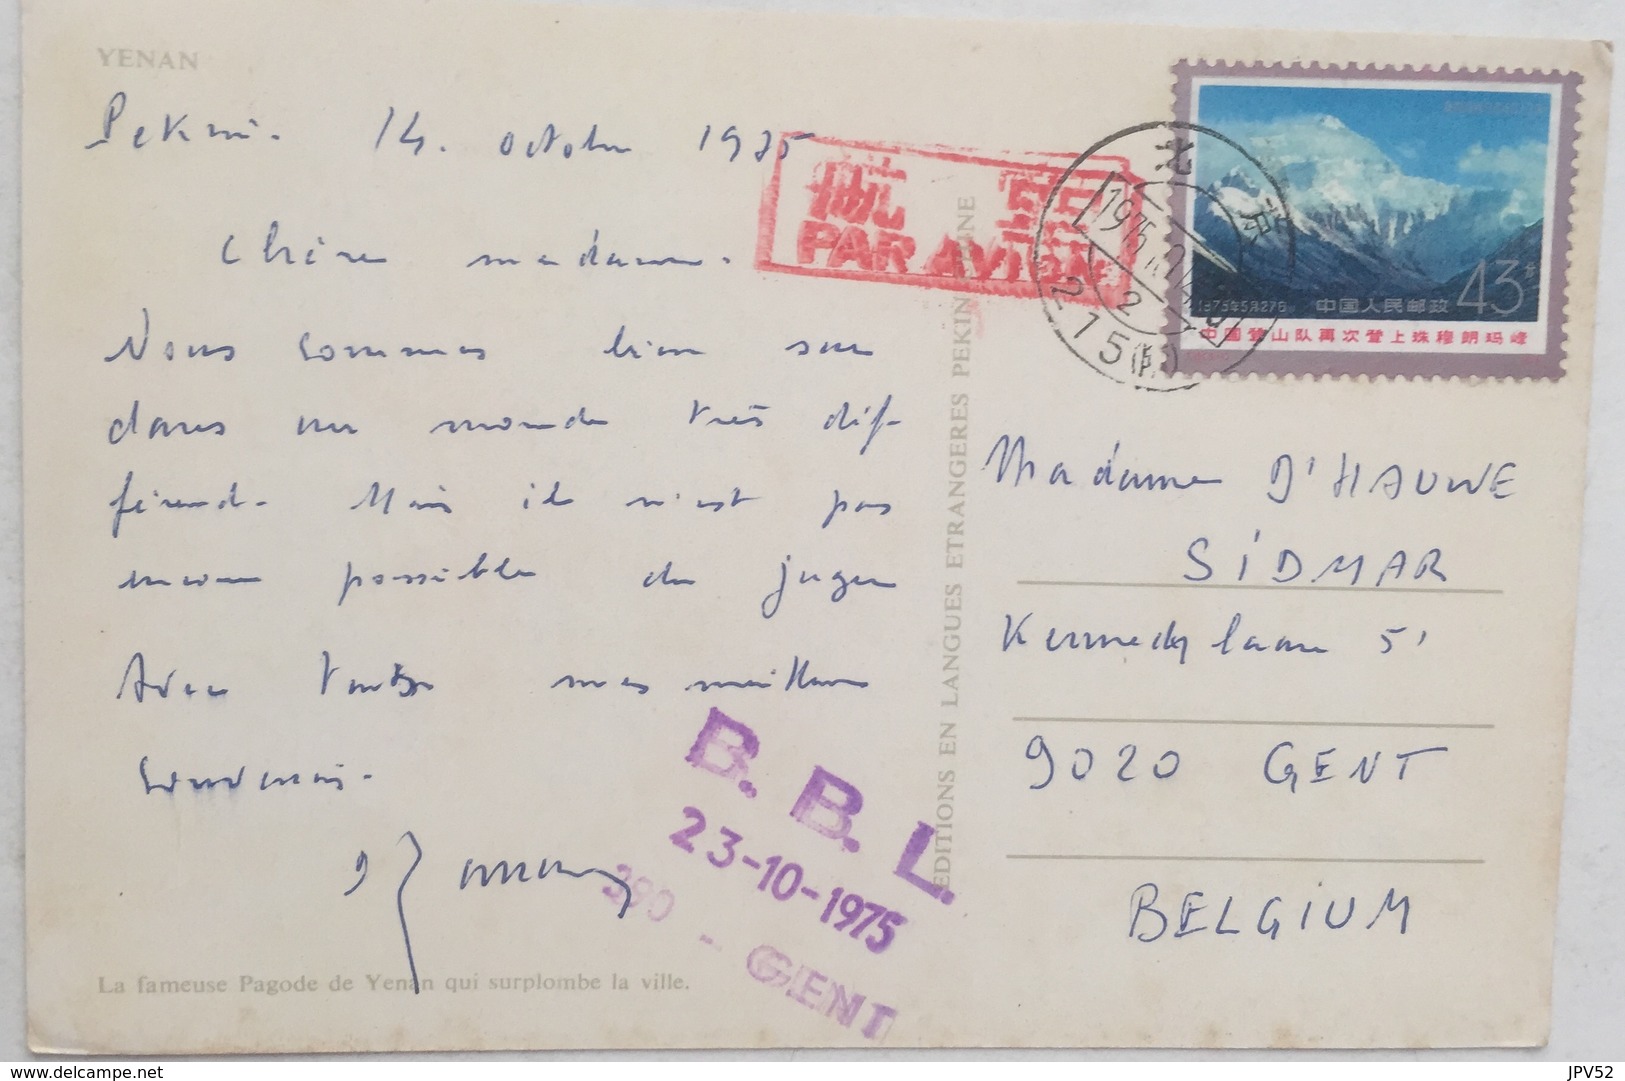 YENAN
Pekin. 14. octobre 1975
Chère madame.
Nous sommes bien sur
dans un monde très dif-
férend. Mais il n'est pas
encore possible de juger
Avec toutes mes meilleurs
souvenirs.
La fameuse Pagode de Yenan qui surplombe la ville.
航空
PAR AVION
EDITIONS EN LANGUES ETRANGERES PEKIN CHINE
北京
1975
215
1975年5月27日
中国人民邮政
43分
中国登山队再次登上珠穆朗玛峰
Madame D'HAUWE
SIDMAR
Kennedylaan 51
9020 GENT
BELGIUM
B.B.L.
23-10-1975
390 - GENT
delcampe.net
JPV52